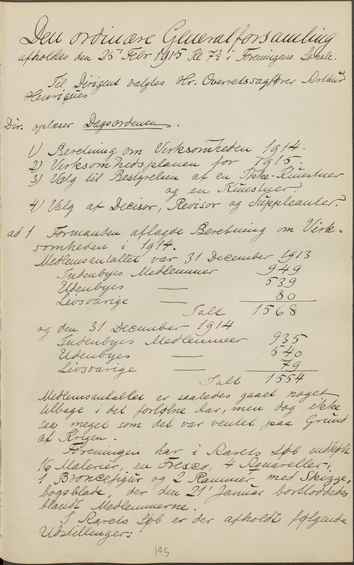 Den ordinære Generalforsamling
afholdes den 25' Febr. 1915 Kl. 7½ i Foreningens Lokale.
Til Dirigent valgtes Hr. Overretssagfører Erland
Henriques
Dir. oplæser Dagsordenen.
1) Beretning om Virksomheden 1914.
2) Virksomhedsplanen for 1915.
3) Valg til Bestyrelsen af en Ikke-Kunstner
og en Kunstner.
4) Valg af Decisor, Revisor og Suppleanter.
ad 1 Formanden aflagde Beretning om Virk-
somheden i 1914.
Medlemsantallet var 31 December 1913
Indenbyes Medlemmer 949
Udenbyes — 539
Livsvarige — 80
Ialt 1568
og den 31 December 1914
Indenbyes Medlemmer 935
Udenbyes — 540
Livsvarige — 79
Ialt 1554
Medlemsantallet er saaledes gaaet noget
tilbage i det forløbne Aar, men dog ikke
saa meget som det var ventet paa Grund
af Krigen.
Foreningen har i Aarets Løb indkøbt
16 Malerier, en 4 Akvareller,
1 Broncefigur og 2 Rammer med Skizze-
bogsblade, der den 21' Januar bortloddedes
blandt Medlemmerne.
I Aarets Løb er der afholdt følgende
Udstillinger:
195